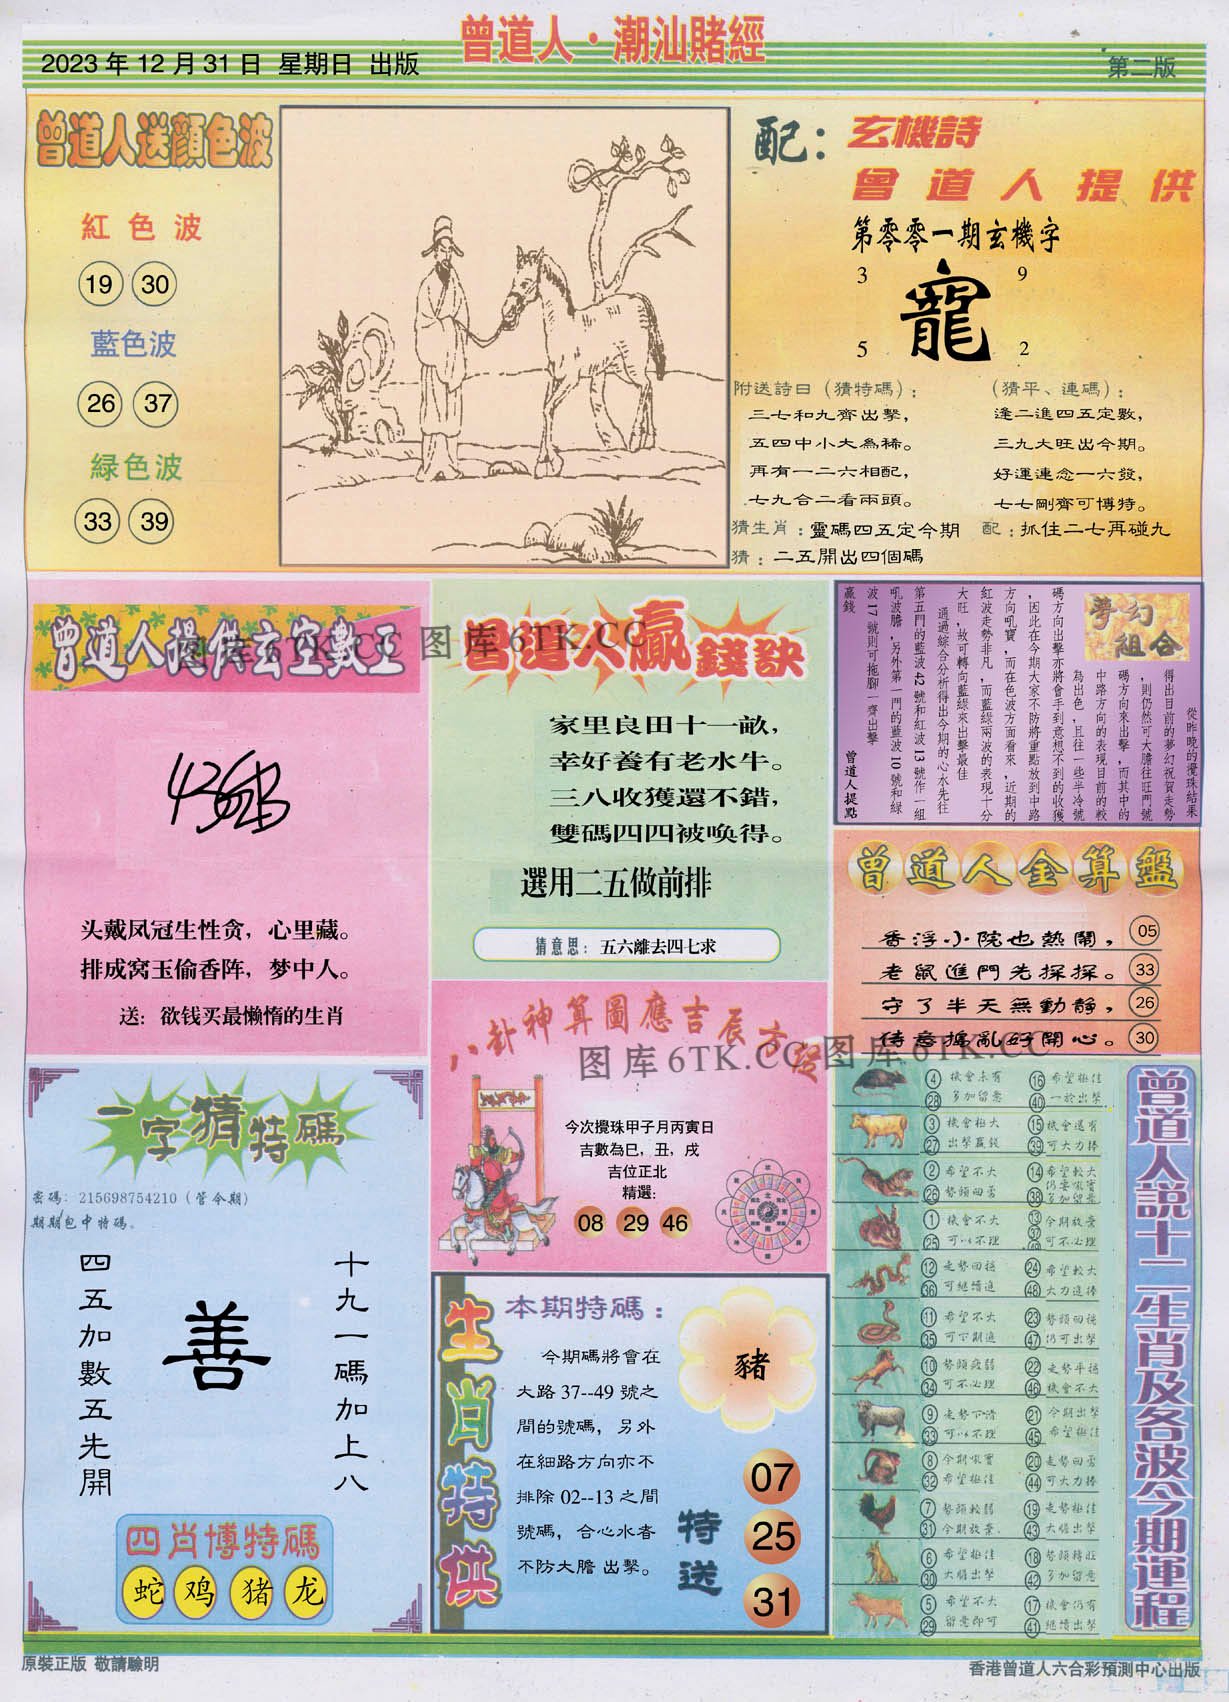 曾道人·潮汕賭經
2023年12月31日 星期日 出版
第二版
曾道人送顏色波
紅色波
19 30
藍色波
26 37
緑色波
33 39
配：
玄機詩
曾道人提供
第零零一期玄機字
3 9
寵
5 2
附送詩曰（猜特碼）：
三七和九齊出擊，
五四中小大為稀。
再有一二六相配，
七九合二看兩頭。
（猜平、連碼）：
逢二進四五定數，
三九大旺出今期。
好運連念一六發，
七七剛齊可博特。
猜生肖：靈碼四五定今期
配：抓住二七再碰九
猜：二五開出四個碼
曾道人提供玄空數王
图库6TK.CC 图库6TK.CC
头戴凤冠生性贪，心里藏。
排成窝玉偷香阵，梦中人。
送：欲钱买最懒惰的生肖
曾道人贏錢訣
家里良田十一畝，
幸好養有老水牛。
三八收獲還不錯，
雙碼四四被唤得。
選用二五做前排
猜意思：五六離去四七求
夢幻組合
從昨晚的攪珠結果
得出目前的夢幻祝賀走勢
，則仍然可大膽往旺門號
碼方向來出擊，而其中的
中路方向的表現目前的較
為出色，且往一些半冷號
碼方向出擊亦將會手到意想不到的收獲
，因此在今期大家不防將重點放到中路
方向吼寶，而在色波方面看來，近期的
紅波走勢非凡，而藍綠兩波的表現十分
大旺，故可轉向藍綠來出擊最佳
通過綜合分析得出今期的心水先往
第五門的藍波42號和紅波13號作一組
吼波膽，另外第一門的藍波10號和綠
波17號則可拖腳一齊出擊
贏錢
曾道人提點
曾道人金算盤
香浮小院也熱鬧， 05
老鼠進門先探探。 33
守了半天無動靜， 26
侍意搗亂好開心。 30
八卦神算圖應吉辰方
图库6TK.CC 图库6TK.CC
今次攪珠甲子月丙寅日
吉數為巳，丑，戌
吉位正北
精選：
08 29 46
一字猜特碼
密碼：215698754210（管令期）
期期包中特碼。
十九一碼加上八
善
四五加數五先開
四肖博特碼
蛇 鸡 猪 龙
生肖特供
本期特碼：
今期碼將會在
大路37--49號之
間的號碼，另外
在細路方向亦不
排除02--13之間
號碼，合心水者
不防大膽 出擊。
豬
特送
07
25
31
曾道人説十二生肖及各波今期運程
4 28 機會未有 多加留意 16 40 希望極佳 一於出擊
3 27 機會極大 出擊贏錢 15 39 機會還有 可大力捧
2 26 希望不大 勢頭回勇 14 38 希望較大 仍要吼實 多加留意
1 25 機會不大 可以不理 13 37 49 今期放棄 可不必理
12 36 走勢回穩 可繼續進 24 48 希望較大 大力進捧
11 35 希望不大 可下期進 23 47 勢頭回穩 仍可出擊
10 34 勢頭疲弱 可不必理 22 46 走勢平穩 機會不大
9 33 走勢下滑 可以不理 21 45 今期出擊 希望極佳
8 32 今期吼實 希望極佳 20 44 走勢回勇 可大力捧
7 31 勢頭較弱 今期放棄 19 43 走勢極佳 大膽出擊
6 30 希望極佳 大膽出擊 18 42 勢頭轉旺 多加留意
5 29 希望不大 留意即可 17 41 機會仍有 繼續出擊
原裝正版 敬請驗明
香港曾道人六合彩預測中心出版